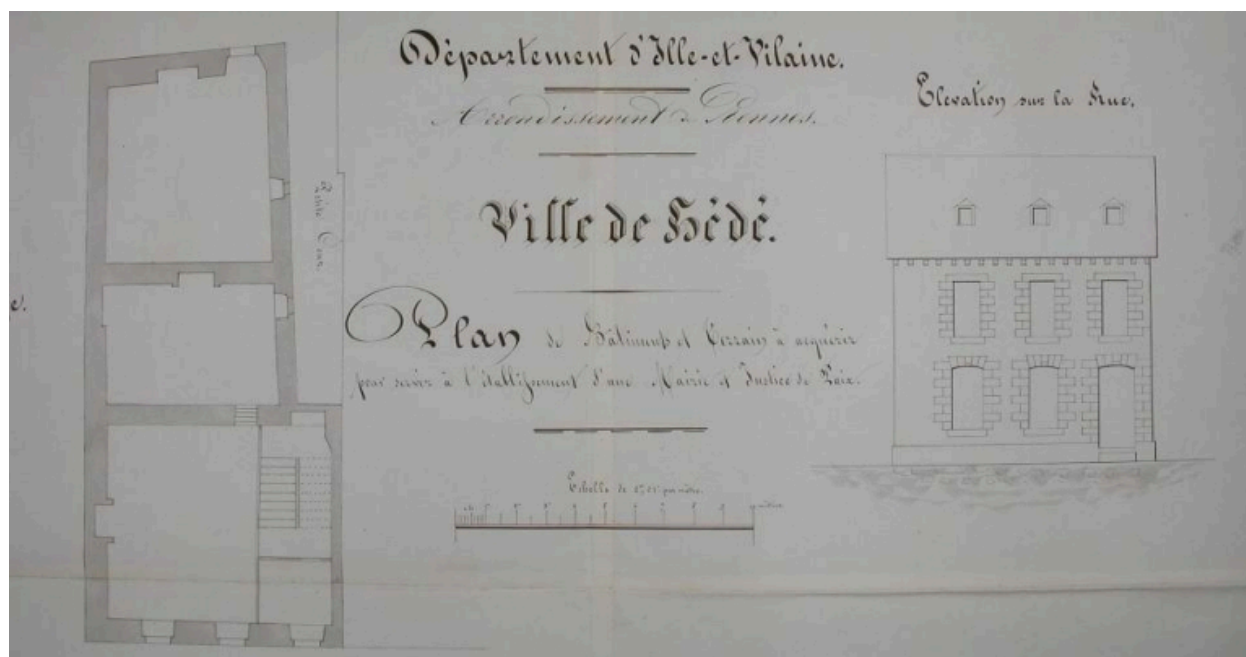 Département d'Ille-et-Vilaine.
Arrondissement de Rennes.
Ville de Hédé.
Plan de Bâtiment et Terrain à acquérir
pour servir à l'établissement d'une Mairie et Justice de Paix.
Echelle de par mètre.
Elevation sur la Rue.
Petite Cour.
e.